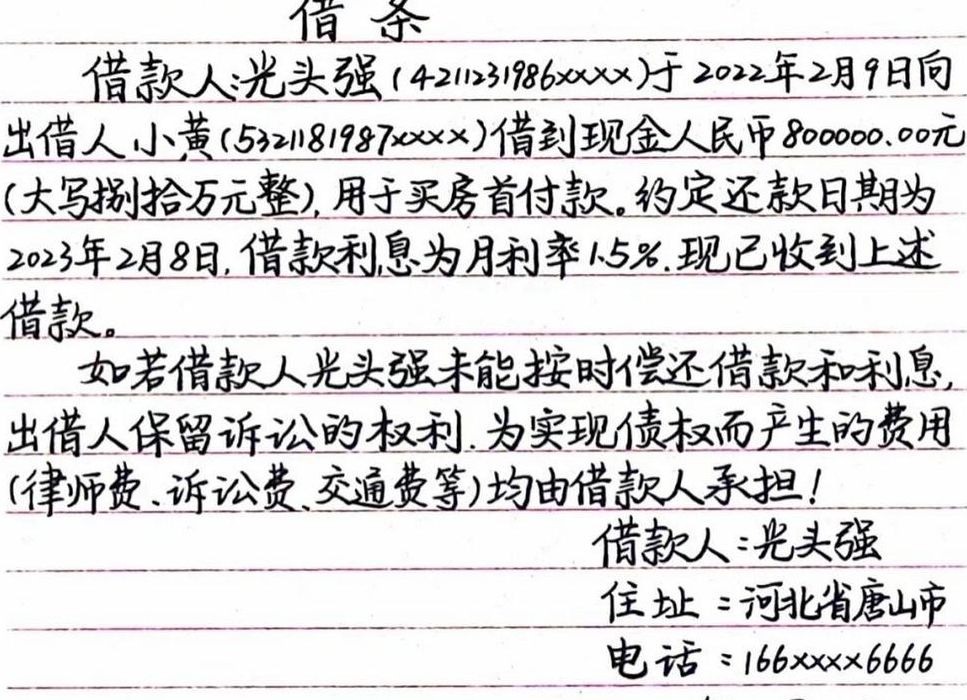 借条
借款人:光头强(4211231986xxxx)于2022年2月9日向
出借人小黄(5321181987xxxx)借到现金人民币800000.00元
(大写捌拾万元整),用于买房首付款。约定还款日期为
2023年2月8日,借款利息为月利率1.5%.现已收到上述
借款。
如若借款人光头强未能按时偿还借款和利息,
出借人保留诉讼的权利.为实现债权而产生的费用
(律师费、诉讼费、交通费等)均由借款人承担!
借款人:光头强
住址:河北省唐山市
电话:166xxxx6666